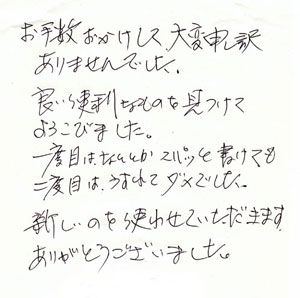 お手数おかけして大変申し訳
ありませんでした。
良い便利なものを見つけて
よろこびました。
一度目はなんとか スパッと書けても
二度目は、うすれてダメでした。
新しいのを使わせていただきます
ありがとうございました。